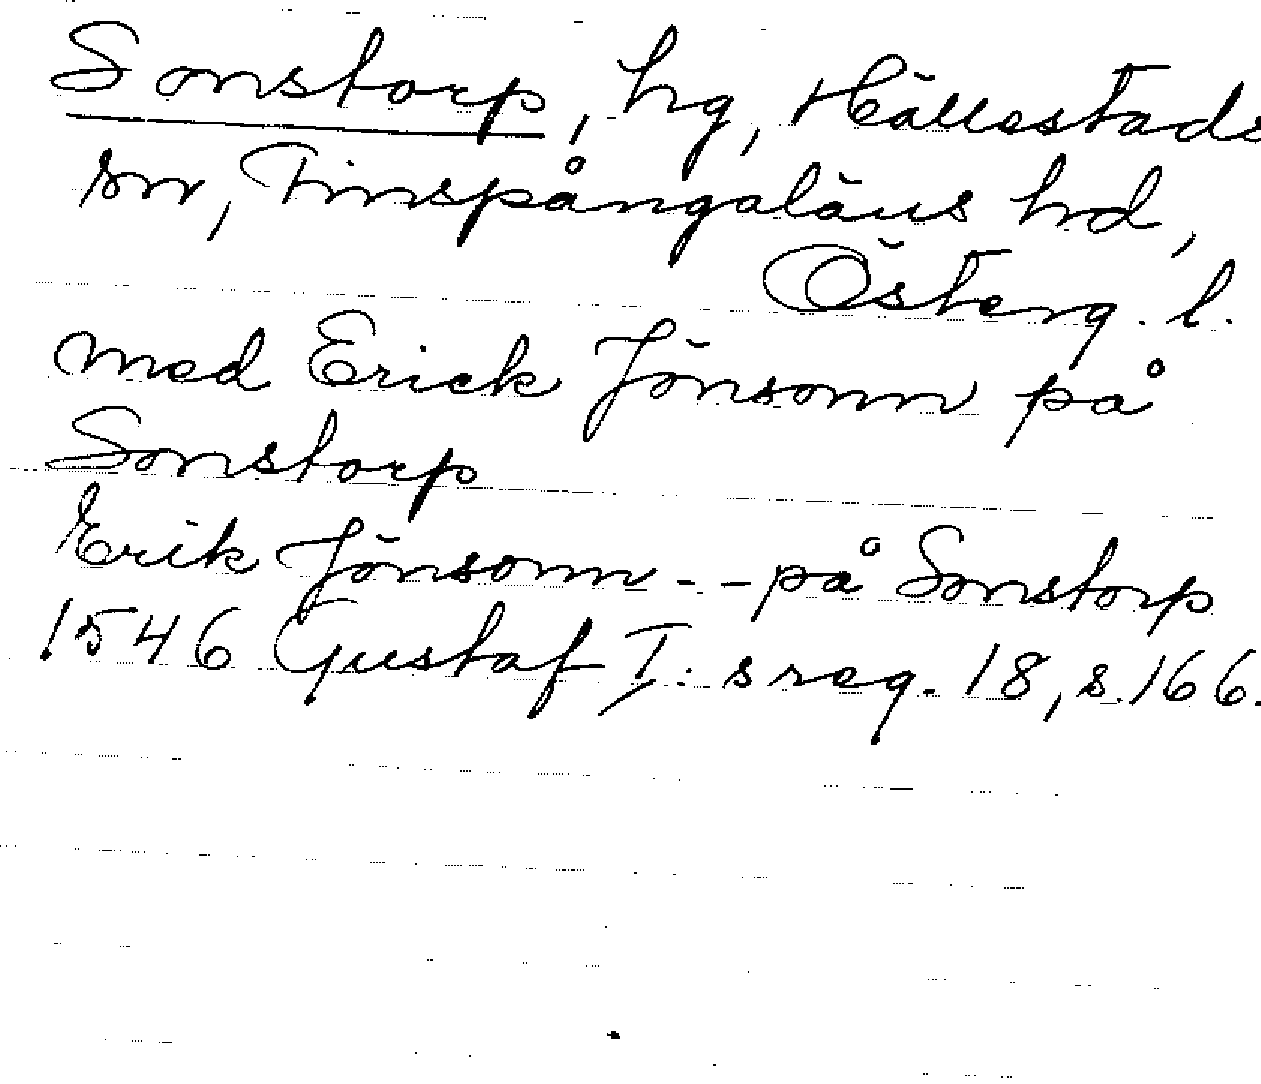 Sonstorp, hg, Hällestads
sn, Finspångaläns hd,
Österg. l.
med Erick Jönsonn på
Sonstorp
Erik Jönsonn - - på Sonstorp
1546 Gustaf I:s reg. 18, s. 166.